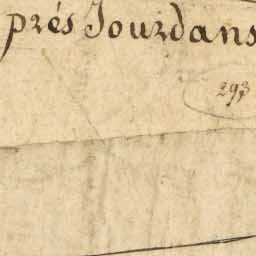 prés Jourdans
293